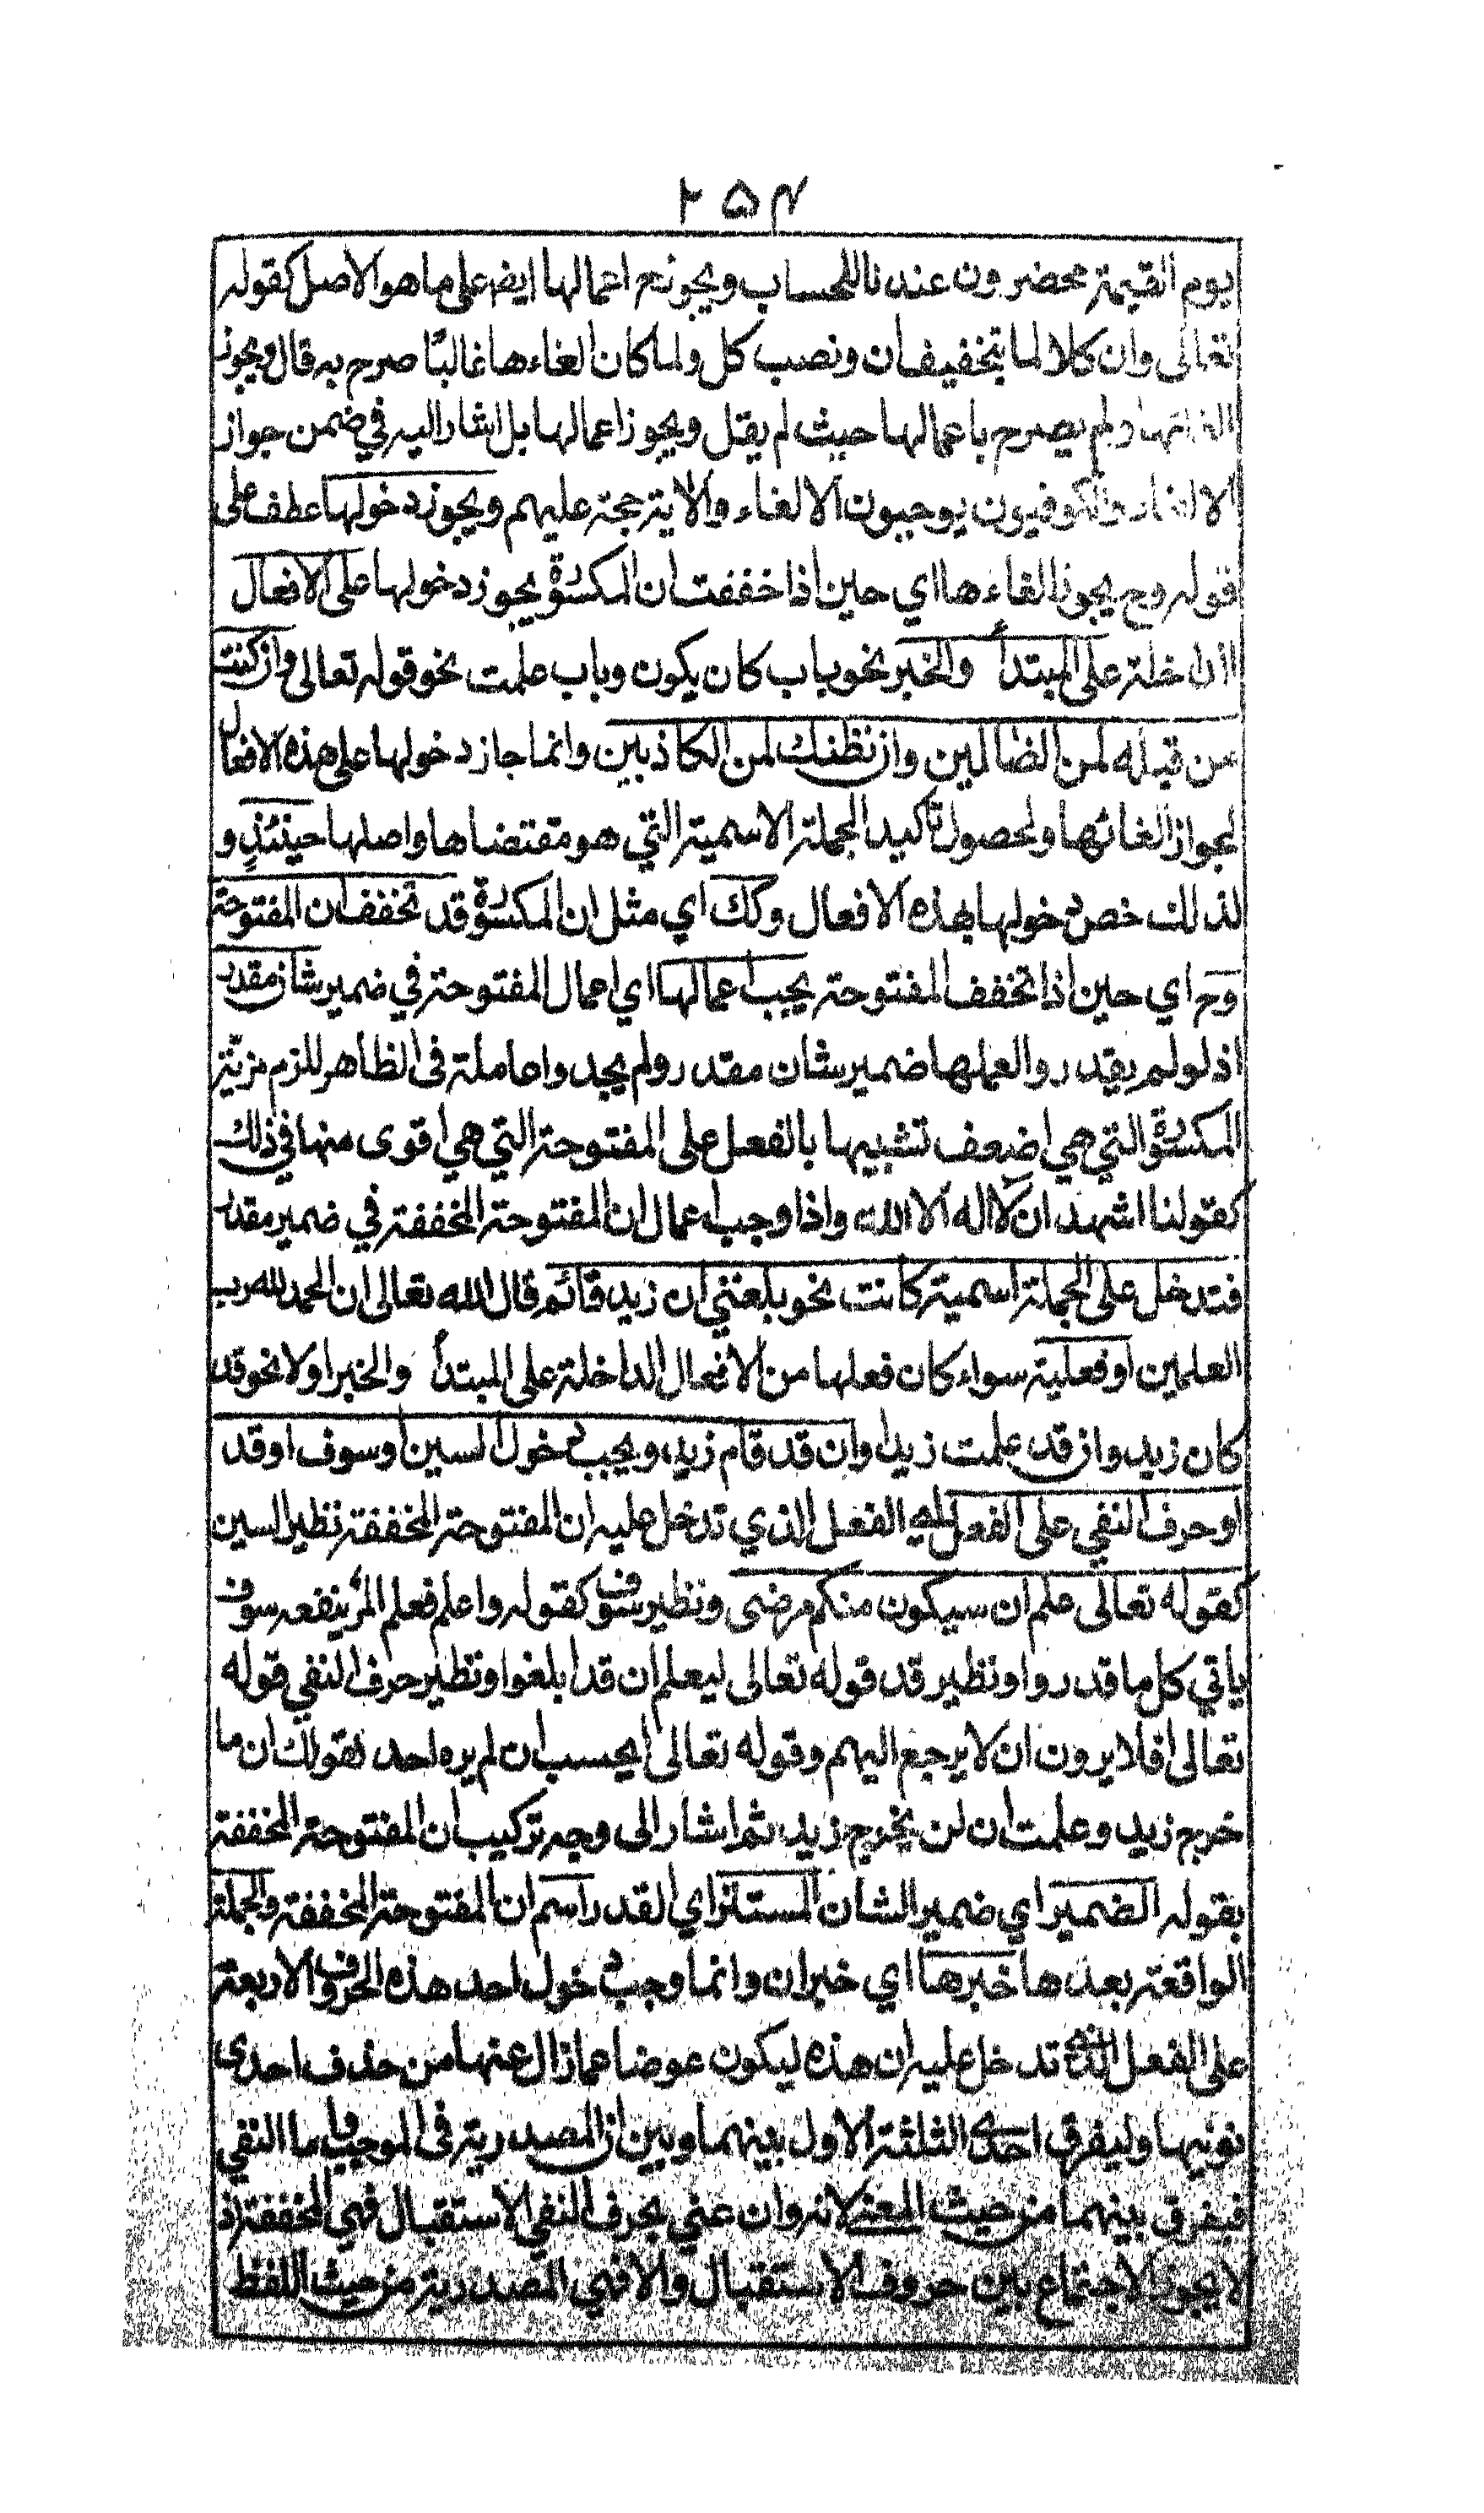 ٢٥٤
يوم القيمة محضرون عندنا للحساب ويجوزح اعمالها ايض على ما هو الاصل كقوله
تعالى وان كلا لما بتخفيف ان ونصب كل ولما كان الغاءها غالبًا صرح به قال ويجوز
الغائها ولم يصرح باعمالها حيث لم يقل ويجوز اعمالها بل اشار اليه في ضمن جواز
الالغاء والكوفيون يوجبون الالغاء والاية حجة عليهم ويجوز دخولها عطف على
قوله وح يجوز الغاءها اي حين اذا خففت ان المكسورة يجوز دخولها على الافعال
الداخلة على المبتدأ والخبر نحو باب كان يكون وباب علمت نحو قوله تعالى وان كنت
من قبله لمن الضالين وان نظنك لمن الكاذبين وانما جاز دخولها على هذه الافعال
لجواز الغائها ولحصول تأكيد الجملة الاسمية التي هو مقتضاها واصلها حينئذٍ و
لذالك خص دخولها بهذه الافعال وكك اي مثل ان المكسورة قد تخفف ان المفتوحة
وح اي حين اذا تخفف المفتوحة يجب اعمالها اي اعمال المفتوحة في ضمير شان مقدر
اذ لو لم يقدروا لعملها ضمير شان مقدر ولم يجدوا عاملة فى الظاهر للزم مزية
المكسورة التي هي اضعف تشبيها بالفعل على المفتوحة التي هي اقوى منها في ذلك
كقولنا اشهد ان لا اله الا الله واذا وجب اعمال ان المفتوحة المخففة في ضمير مقدر
فتدخل على الجملة اسمية كانت نحو بلغني ان زيد قائم قال الله تعالى ان الحمد لله رب
العلمين او فعلية سواء كان فعلها من الافعال الداخلة على المبتدأ والخبر او لا نحو قد
كان زيد وان قد علمت زيدا وان قد قام زيد ويجب دخول السين او سوف او قد
او حرف النفي على الفعل اي الفعل الذي تدخل عليه ان المفتوحة المخففة نظير السين
كقوله تعالى علم ان سيكون منكم مرضى ونظير سوف كقوله واعلم فعلم المرء ينفعه سوف
ياتي كل ما قدروا ونظير قد قوله تعالى ليعلم ان قد ابلغوا ونظير حرف النفي قوله
تعالى افلا يرون ان لا يرجع اليهم وقوله تعالى ايحسب ان لم يره احد نقولك ان ما
خرج زيد وعلمت ان لن يخرج زيد ثم اشار الى وجه تركيب ان المفتوحة المخففة
بقوله الضمير اي ضمير الشان المستتر اي المقدر اسم ان المفتوحة المخففة والجملة
الواقعة بعدها خبرها اي خبر ان وانما وجب دخول احد هذه الحروف الاربعة
على الفعل الذي تدخل عليه ان هذه ليكون عوضا عما زال عنها من حذف احدى
نونيها وليفرق احدى الثلثة الاول بينهما وبين ان المصدرية فى الموجب واما النفي
فيفرق بينهما من حيث المعنى لانه وان عني بحرف النفي الاستقبال فهي المخففة اذ
لا يجوز الاجتماع بين حروف الاستقبال والا فهي المصدرية من حيث اللفظ